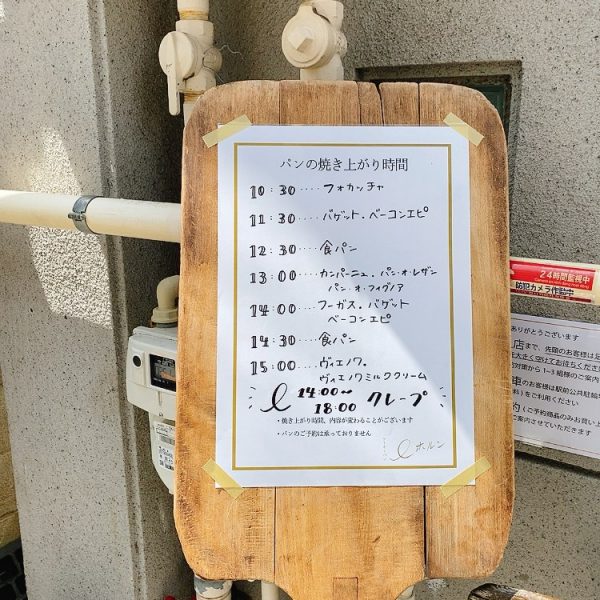 パンの焼き上がり時間
10:30‥‥フォカッチャ
11:30‥‥バゲット・ベーコンエピ
12:30‥‥食パン
13:00‥‥カンパーニュ、パン・オ・レザン
パン・オ・フィグノア
14:00‥‥フーガス・バゲット
ベーコンエピ
14:30‥‥食パン
15:00‥‥ヴィエノワ。
ヴィエノワミルククリーム
14:00〜
18:00 クレープ
・焼き上がり時間、内容が変わることがございます
・パンのご予約は承っておりません
ホルン
24時間監視中
防犯カメラ作
ありがとうございます
店まで、先頭のお客様は足
大きく空けてお待ちくださ
対策から1〜3組様のご案内
車のお客様は駅前公共駐輪
をご利用ください
約くご予約商品のみお買い上
ご案内させていただきます